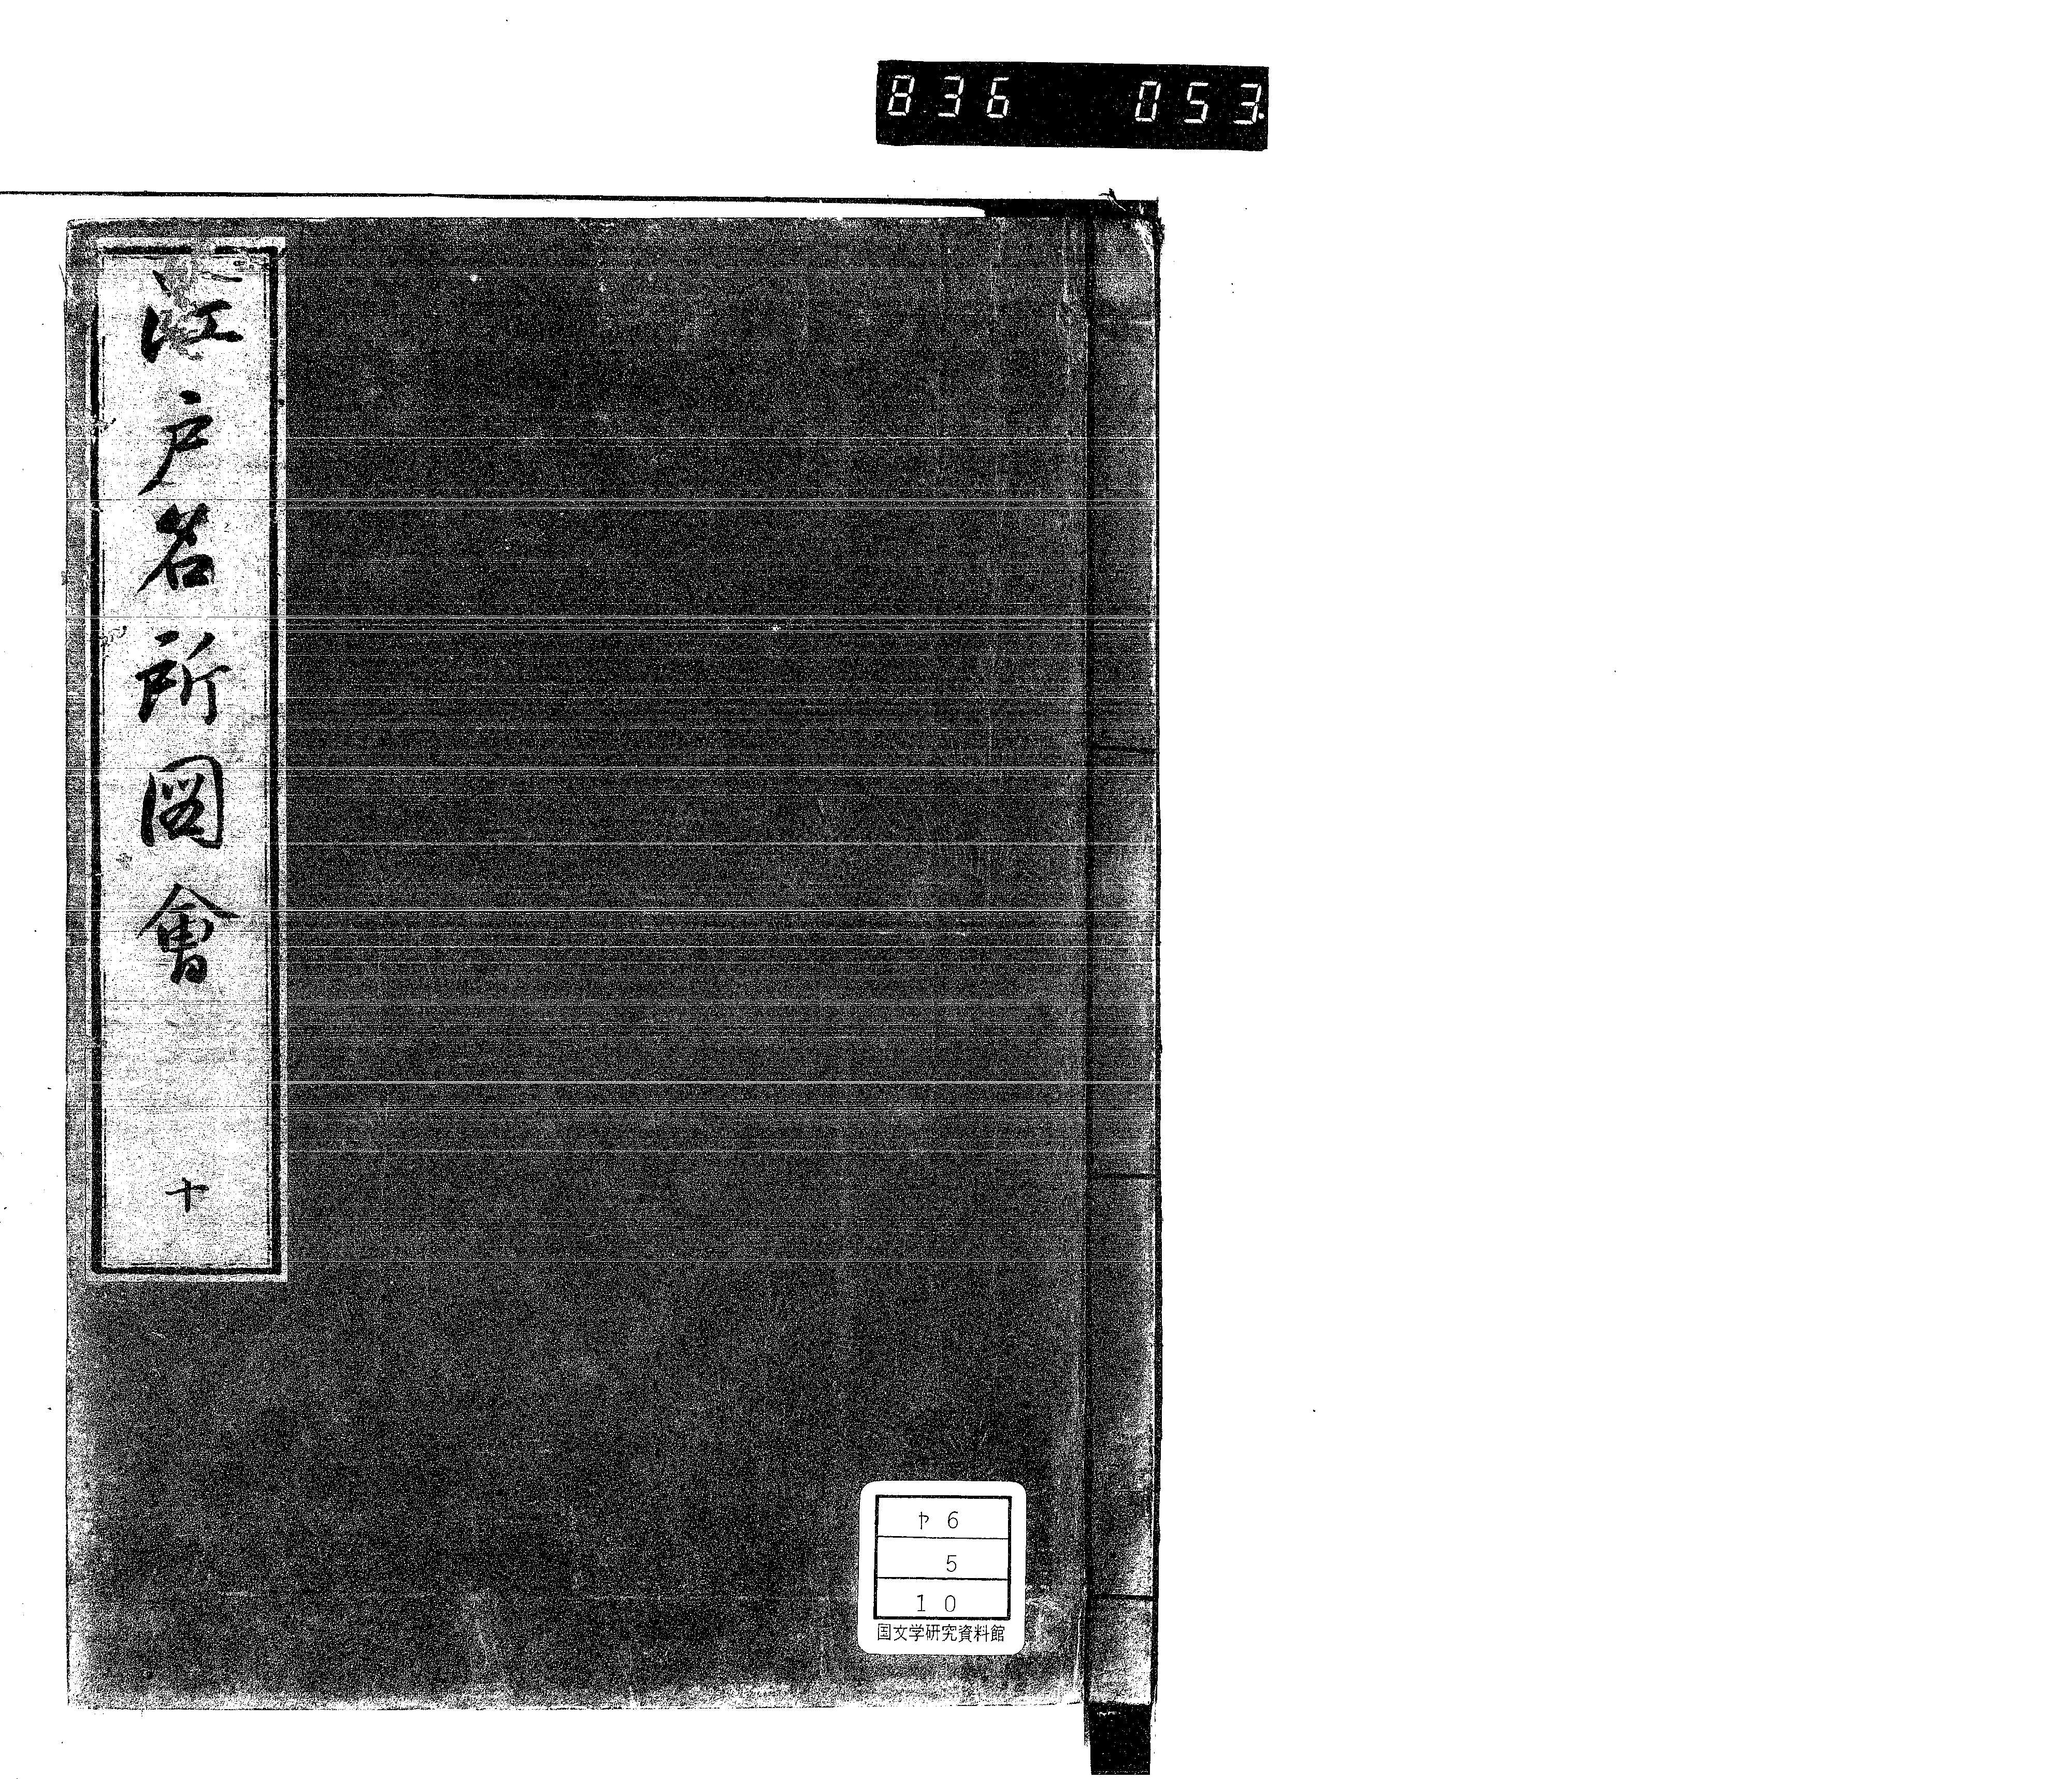 836 053
江戸名所圖會
十
ヤ6
5
10
国文学研究資料館